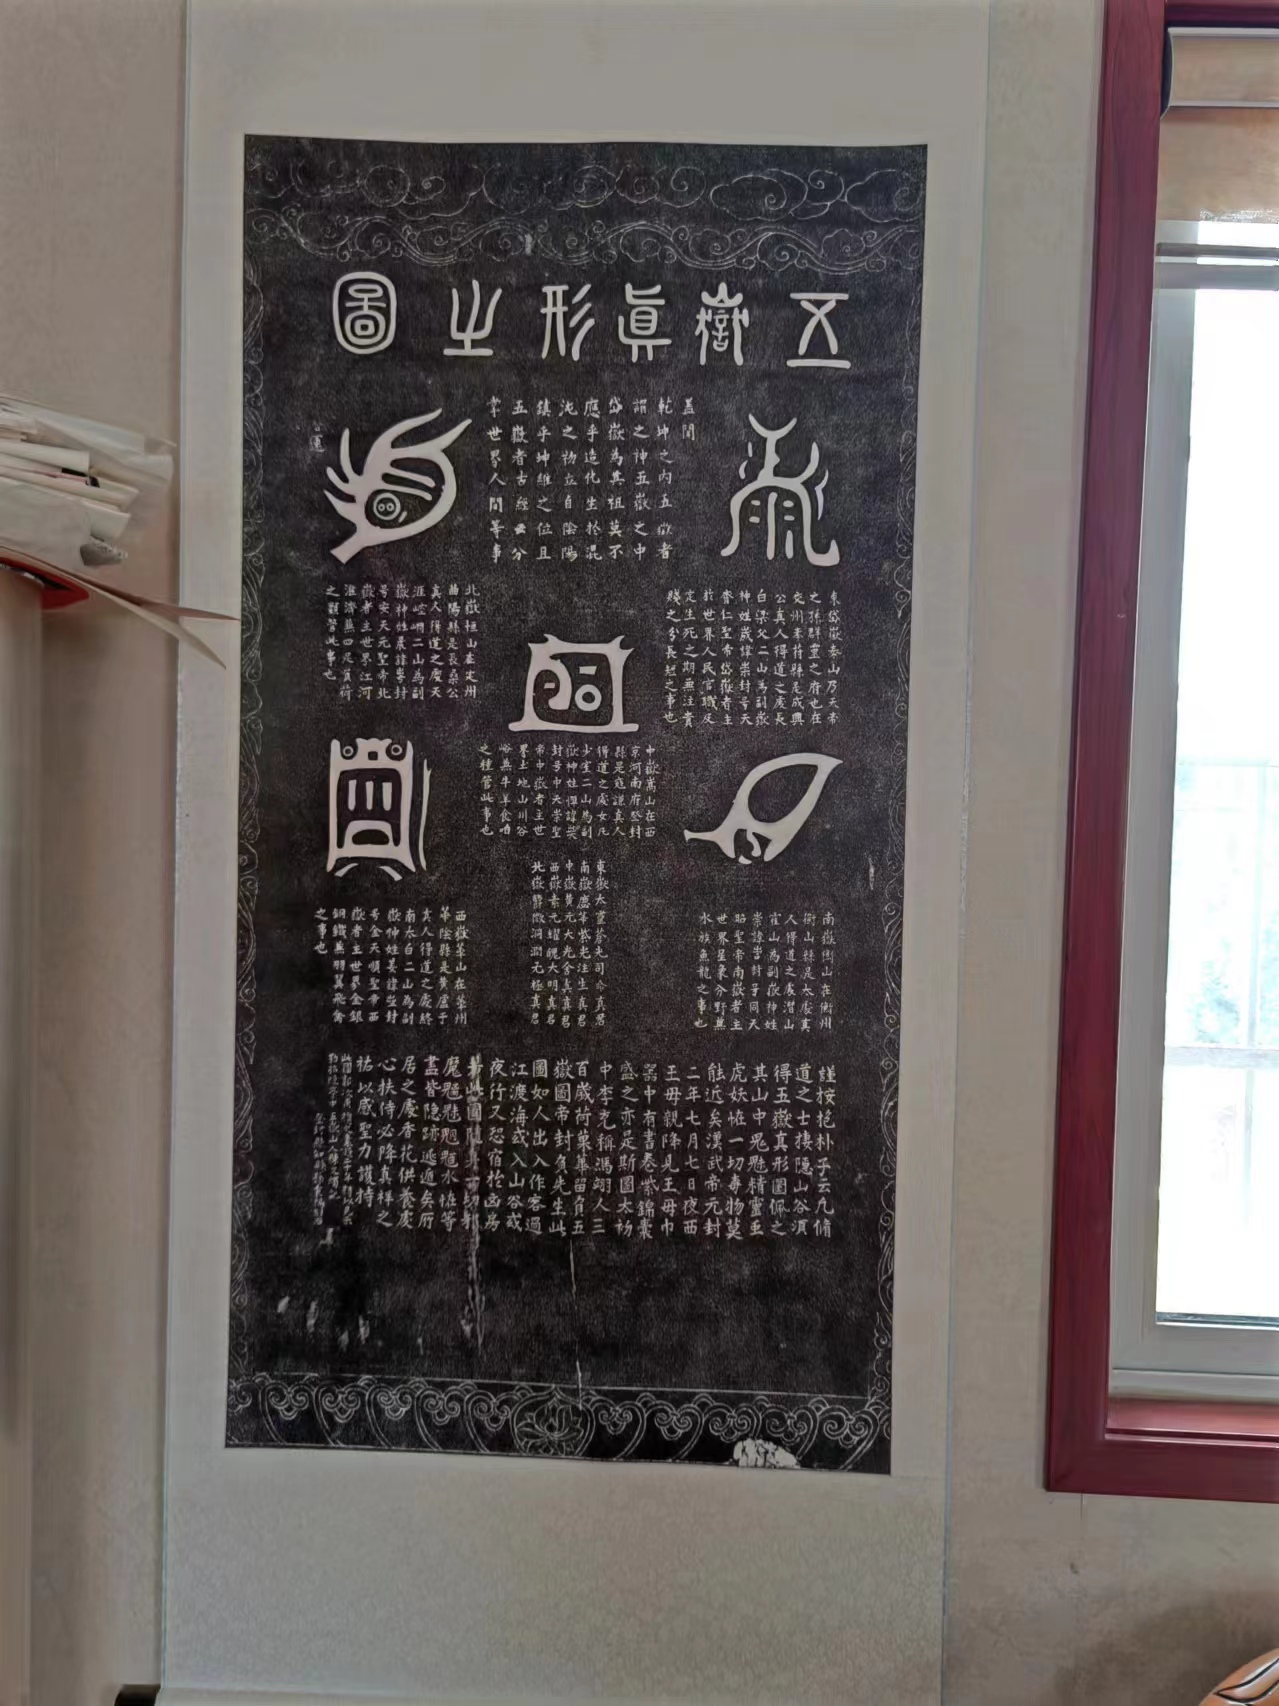 五嶽真形之圖
蓋聞
乾坤之內五嶽者
謂之神五嶽之中
岱嶽為其祖莫不
應乎造化生於混
沌之初立自陰陽
鎮乎坤維之位且
五嶽者古經云分
掌世界人間等事
東岱嶽泰山乃天帝
之孫群靈之府也在
兗州奉符縣是成興
公真人得道之處長
白梁父二山為副嶽
神姓歲諱崇封号天
齊仁聖帝岱嶽者主
於世界人民官職及
定生死之期無注貴
賤之分長短之事也
北嶽恒山在定州
曲陽縣是長桑公
真人得道之處天
涯崆峒二山為副
嶽神姓晨諱崿封
号安天元聖帝北
嶽者主世界江河
淮濟蕪四足負荷
之類管此事也
中嶽嵩山在西
京河南府登封
縣是寇謙真人
得道之處女几
少室二山為副
嶽神姓惲諱
封号中天崇聖
帝中嶽者主世
界土地山川谷
峪無牛羊食啗
之種管此事也
南嶽衡山在衡州
衡山縣是太虛真
人得道之處潛山
霍山為副嶽神姓
崇諱 封号同天
昭聖帝南嶽者主
世界星象分野蕪
水族魚龍之事也
西嶽華山在華州
華陰縣是黃盧子
真人得道之處終
南太白二山為副
嶽神姓姜諱 封
号金天順聖帝西
嶽者主世界金銀
銅鐵蕪羽翼飛禽
之事也
東嶽太靈蒼光司命真君
南嶽慶華紫光注生真君
中嶽黃元大光含真真君
西嶽素元耀魄大明真君
北嶽欝微洞淵无極真君
謹按抱朴子云凡脩
道之士棲隱山谷湏
得五嶽真形圖佩之
其山中鬼魅精靈䖝
虎妖恠一切毒物莫
能近矣漢武帝元封
二年七月七日夜西
王母親降見王母巾
器中有書卷紫錦囊
盛之亦是斯圖太初
中李充稱馮翊人三
百歲荷菓蓽留負五
嶽圖帝封負先生此
圖如人出入作客過
江渡海或入山谷或
夜行又恐宿於凶房
若此圖隨身一切邪
魔魑魅魍魎水恠等
盡皆隱跡逃遁矣所
居之處香花供養處
心扶侍必降真祥之
祐以感聖力護持